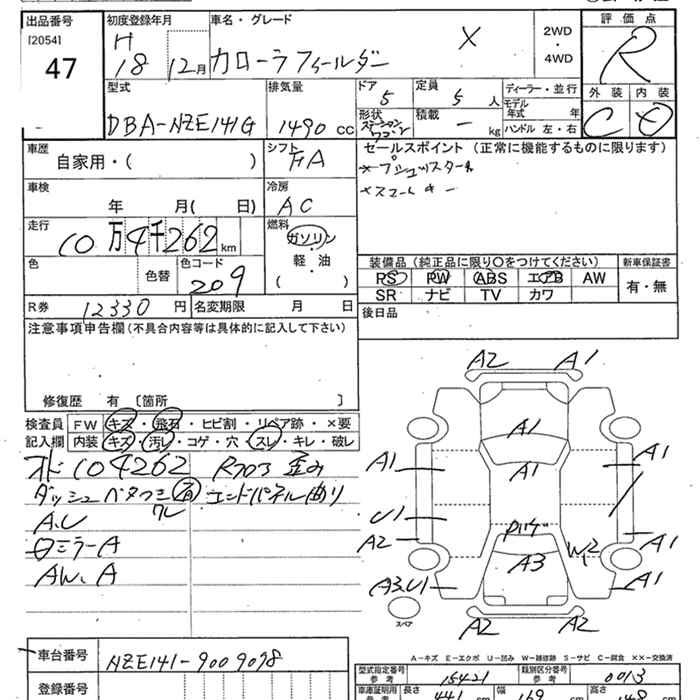 出品番号
[2054]
47
初度登録年月
H 18 12月
車名・グレード
カローラフィールダー X
2WD
・
4WD
評価点
R
外装 内装
C D
型式
DBA-NZE141G
排気量
1490 cc
ドア
5
定員
5 人
形状
ステーションワゴン
積載
― kg
ディーラー・並行
モデル年式 年
ハンドル 左・右
車歴
自家用・( )
シフト
FA
セールスポイント (正常に機能するものに限ります)
*プッシュスタート
*スマートキー
車検
年 月( 日)
冷房
AC
走行
10万4千262 km
燃料
ガソリン
・
軽・油
・
( )
色
色替
色コード
209
装備品(純正品に限り○をつけてください)
PS PW ABS エアB AW
SR ナビ TV カワ
新車保証書
有・無
R券 12330 円
名変期限 月 日
後日品
注意事項申告欄(不具合内容等は具体的に記入して下さい)
修復歴 有 〔箇所 〕
検査員記入欄
FW キズ・飛石・ヒビ割・リペア跡・×要
内装 キズ・汚レ・コゲ・穴・スレ・キレ・破レ
オド104262 Rフロア歪み
ダッシュベタつき有 ワレ エンドパネル曲り
A.U
ミラーA
AW.A
A2 A1
A1
A1 A1 A1
U1
A2 A1
A3 W2
A3.U1 A1
スペア
A2 A2
A−キズ E−エクボ U−凹み W−補修跡 S−サビ C−腐食 ××−交換済
車台番号
NZE141-9009098
登録番号
型式指定番号
参考
15421
類別区分番号
参考
0013
車庫証明用
参考
長さ 441 cm
幅 169 cm
高さ 148 cm